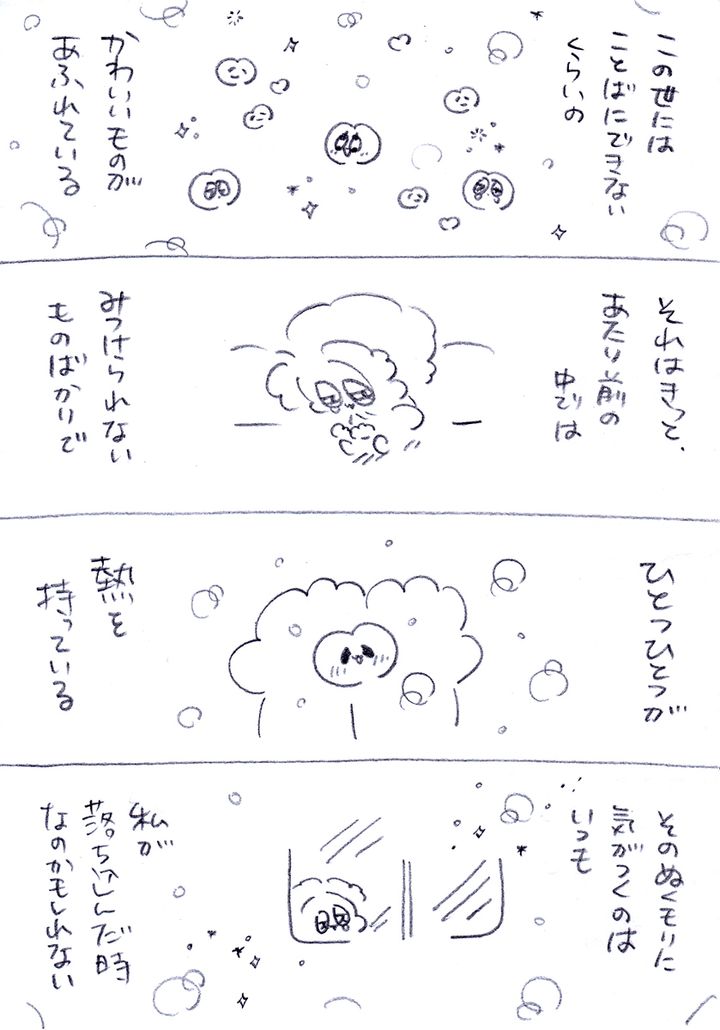 この世には
ことばにできない
くらいの
かわいいものが
あふれている
それはきっと、
あたり前の
中では
みつけられない
ものばかりで
ひとつひとつが
熱を
持っている
そのぬくもりに
気がつくのは
いつも
私が
落ち込んだ時
なのかもしれない